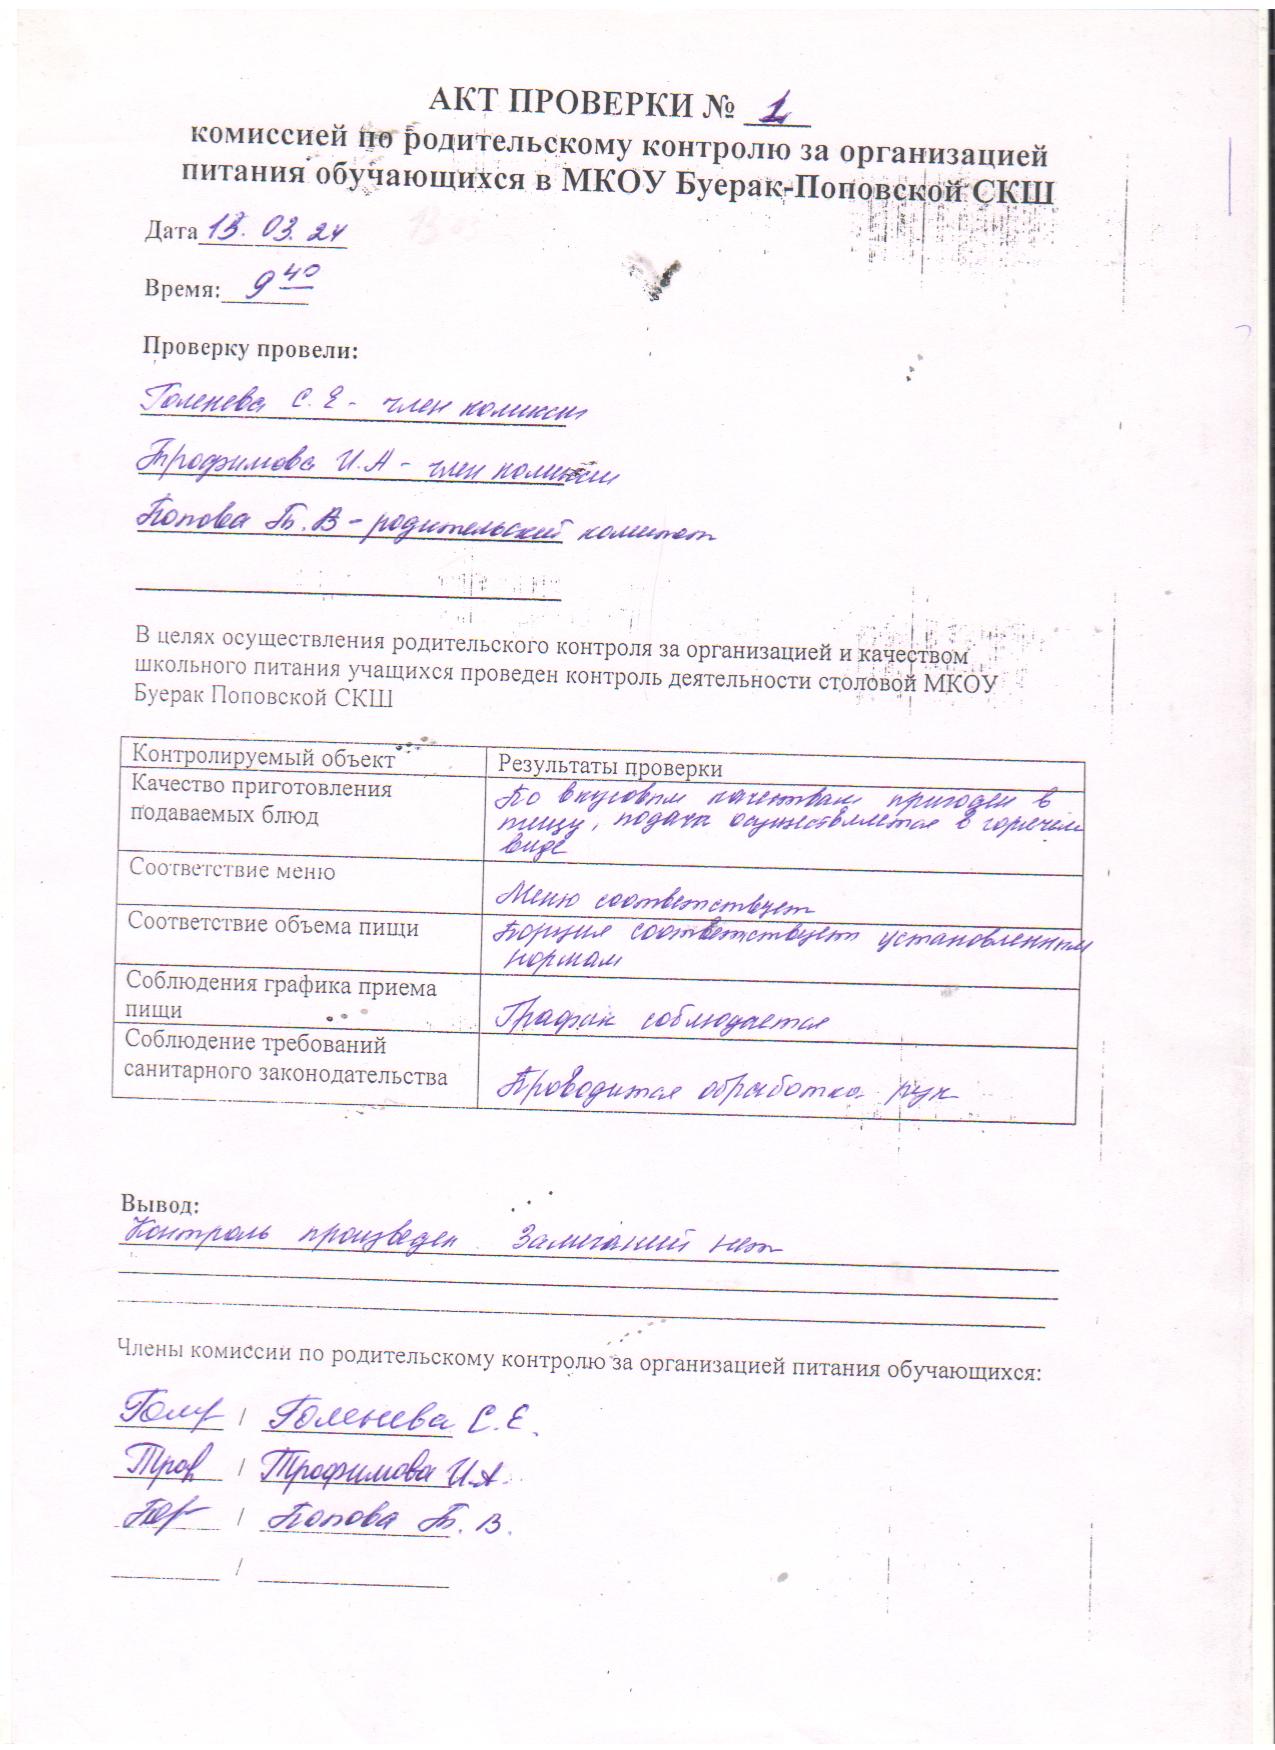 АКТ ПРОВЕРКИ № 1
комиссией по родительскому контролю за организацией
питания обучающихся в МКОУ Буерак-Поповской СКШ
Дата 13. 03. 24
Время: 9 40
Проверку провели:
Голенева С. Е - член комиссии
Трофимова И.А - член комиссии
Попова Т. В - родительский комитет
В целях осуществления родительского контроля за организацией и качеством
школьного питания учащихся проведен контроль деятельности столовой МКОУ
Буерак Поповской СКШ
Контролируемый объект
Результаты проверки
Качество приготовления
подаваемых блюд
По вкусовым качествам пригоден в
пищу, подача осуществляется в горячем
виде
Соответствие меню
Меню соответствует
Соответствие объема пищи
Порция соответствует установленным
нормам
Соблюдения графика приема
пищи
График соблюдается
Соблюдение требований
санитарного законодательства
Проводится обработка рук
Вывод:
Контроль произведен. Замечаний нет
Члены комиссии по родительскому контролю за организацией питания обучающихся:
/ Голенева С. Е.
/ Трофимова И.А.
/ Попова Т. В.
/